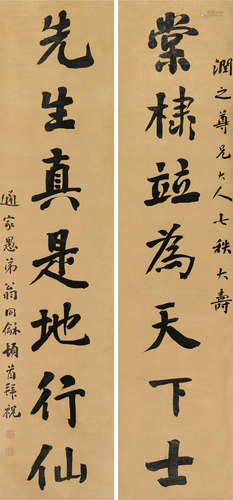 潤之尊兄大人七秩大壽
棠棣並為天下士
先生真是地行仙
通家愚弟翁同龢頓首拜祝